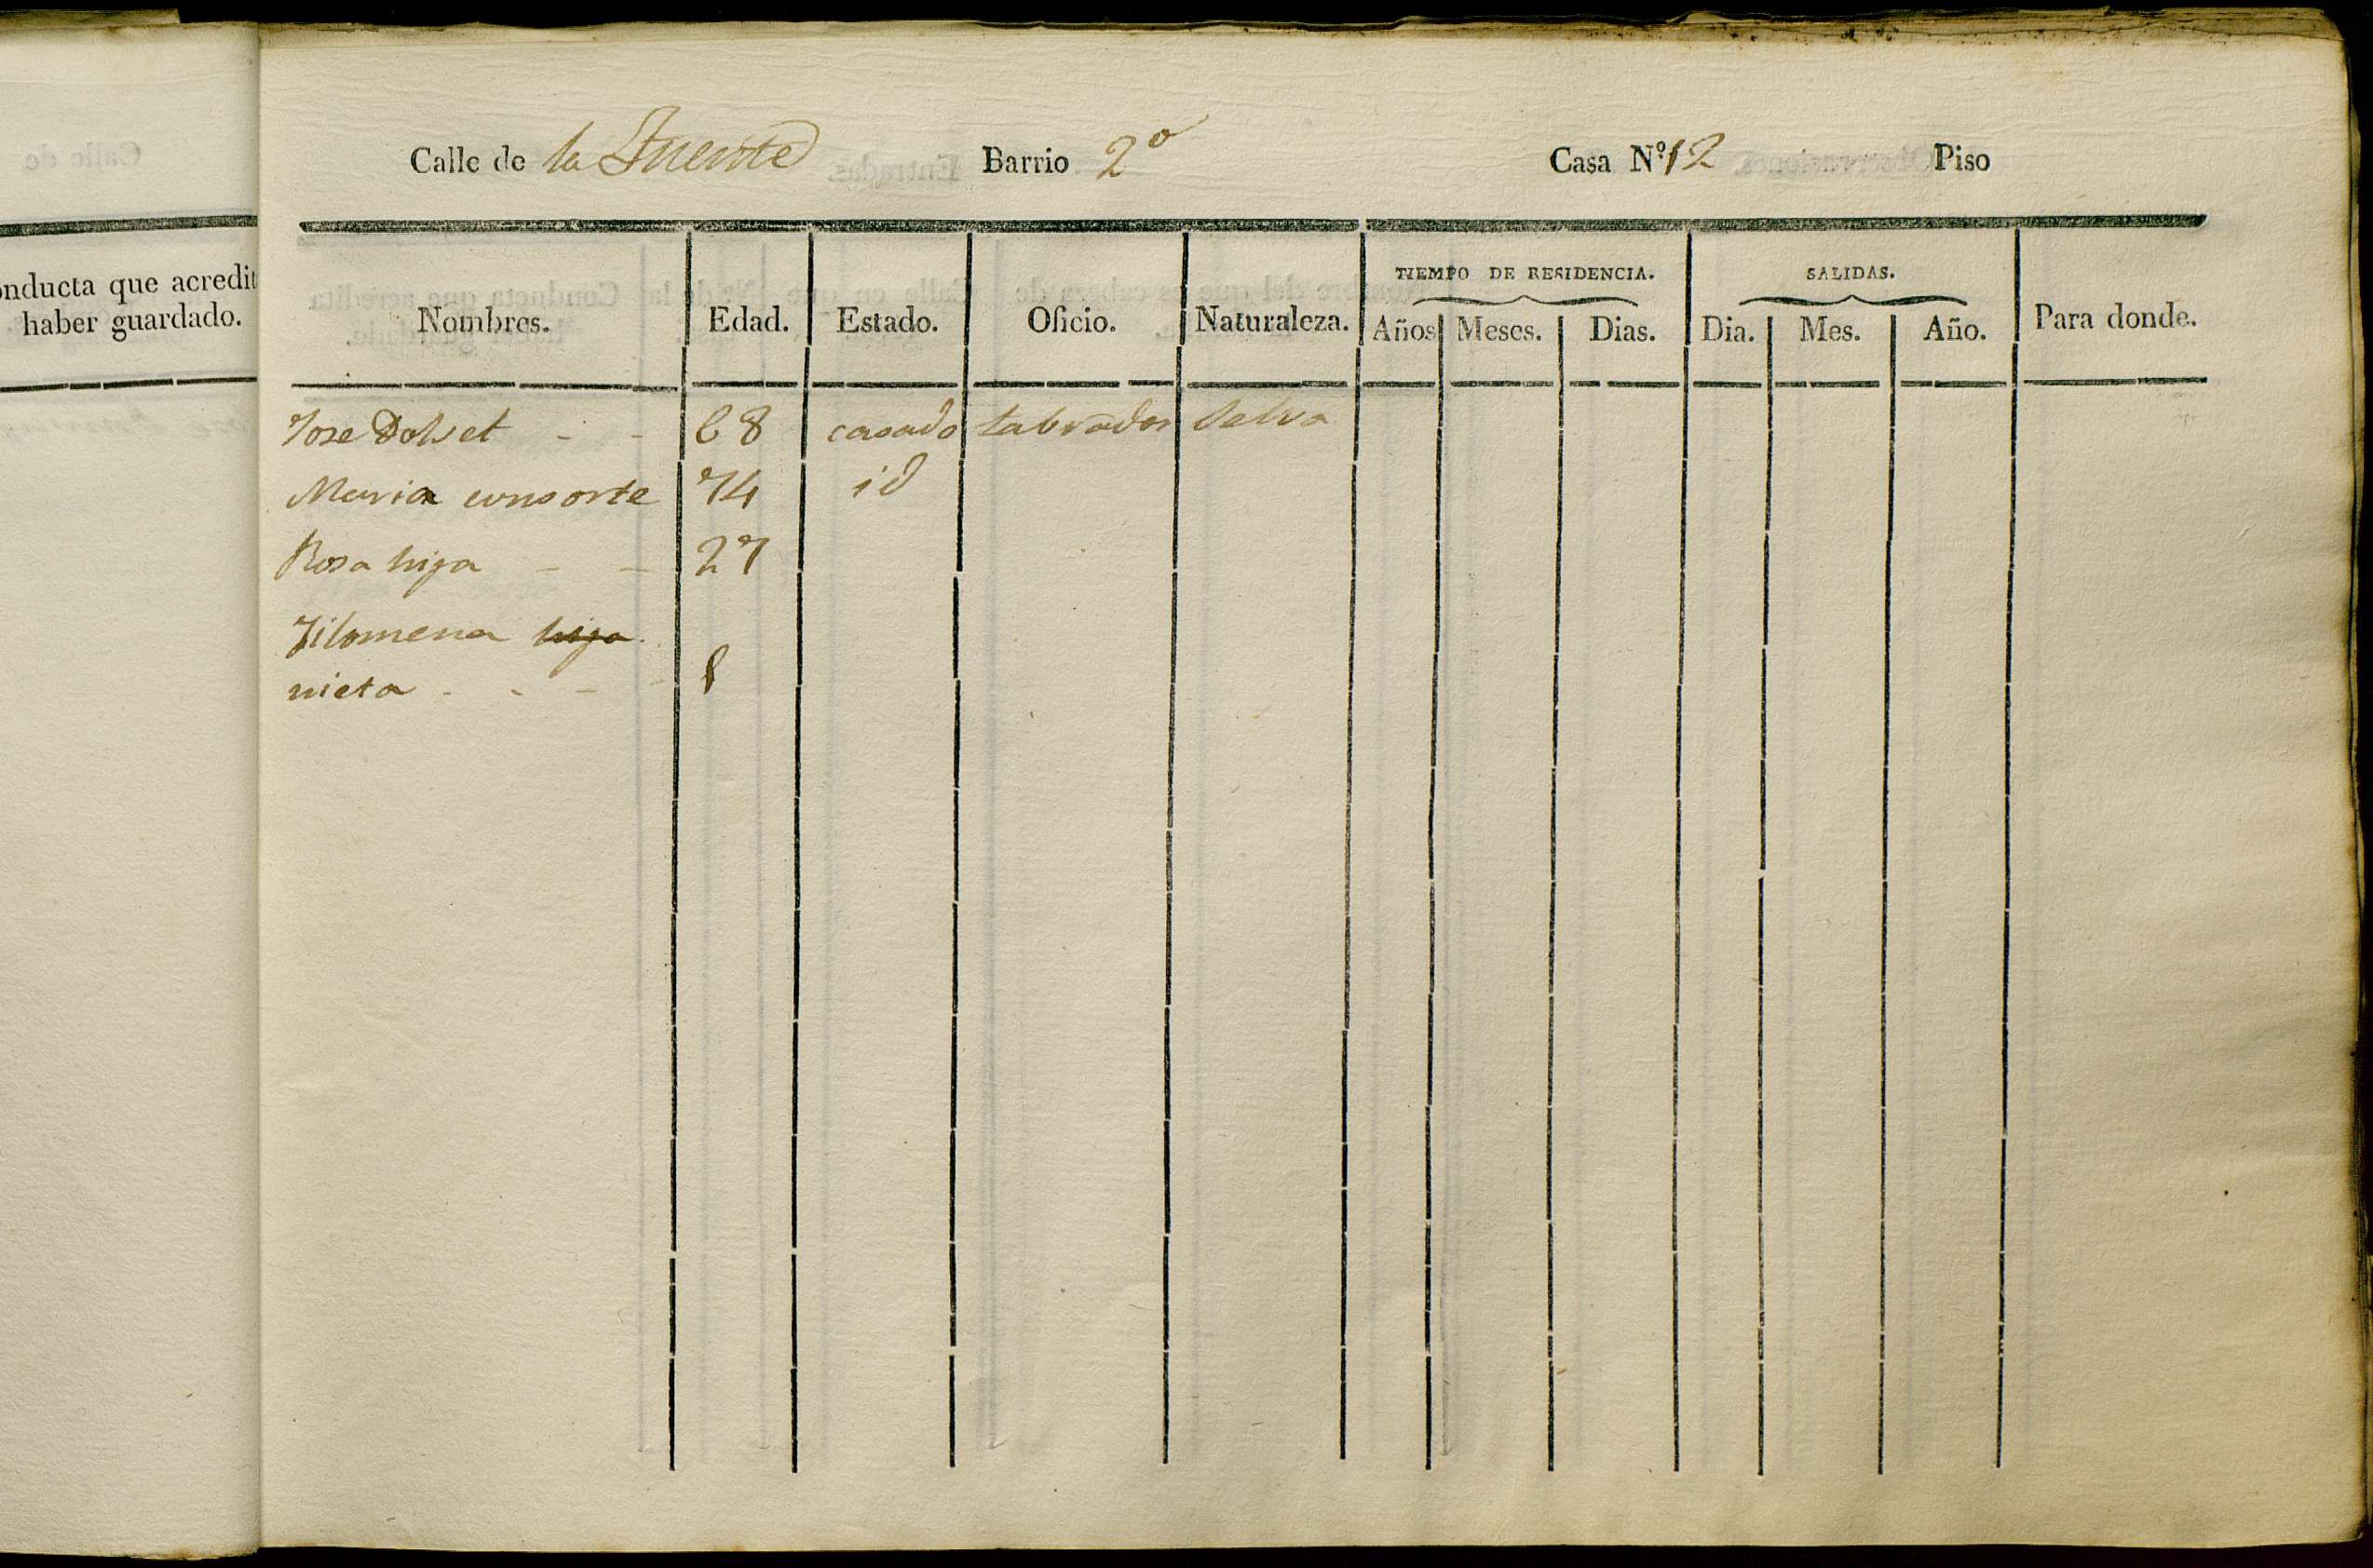 onducta que acredit
haber guardado.
Calle de la Fuente Barrio 2º Casa Nº 12 Piso
TIEMPO DE RESIDENCIA. SALIDAS.
Nombres. Edad. Estado. Oficio. Naturaleza. Años Meses. Dias. Dia. Mes. Año. Para donde.
Jose Dolset - - 68 casado Labrador Selva
Maria consorte 74 id
Rosa hija - - 27
Filomena hija
nieta - - - 8